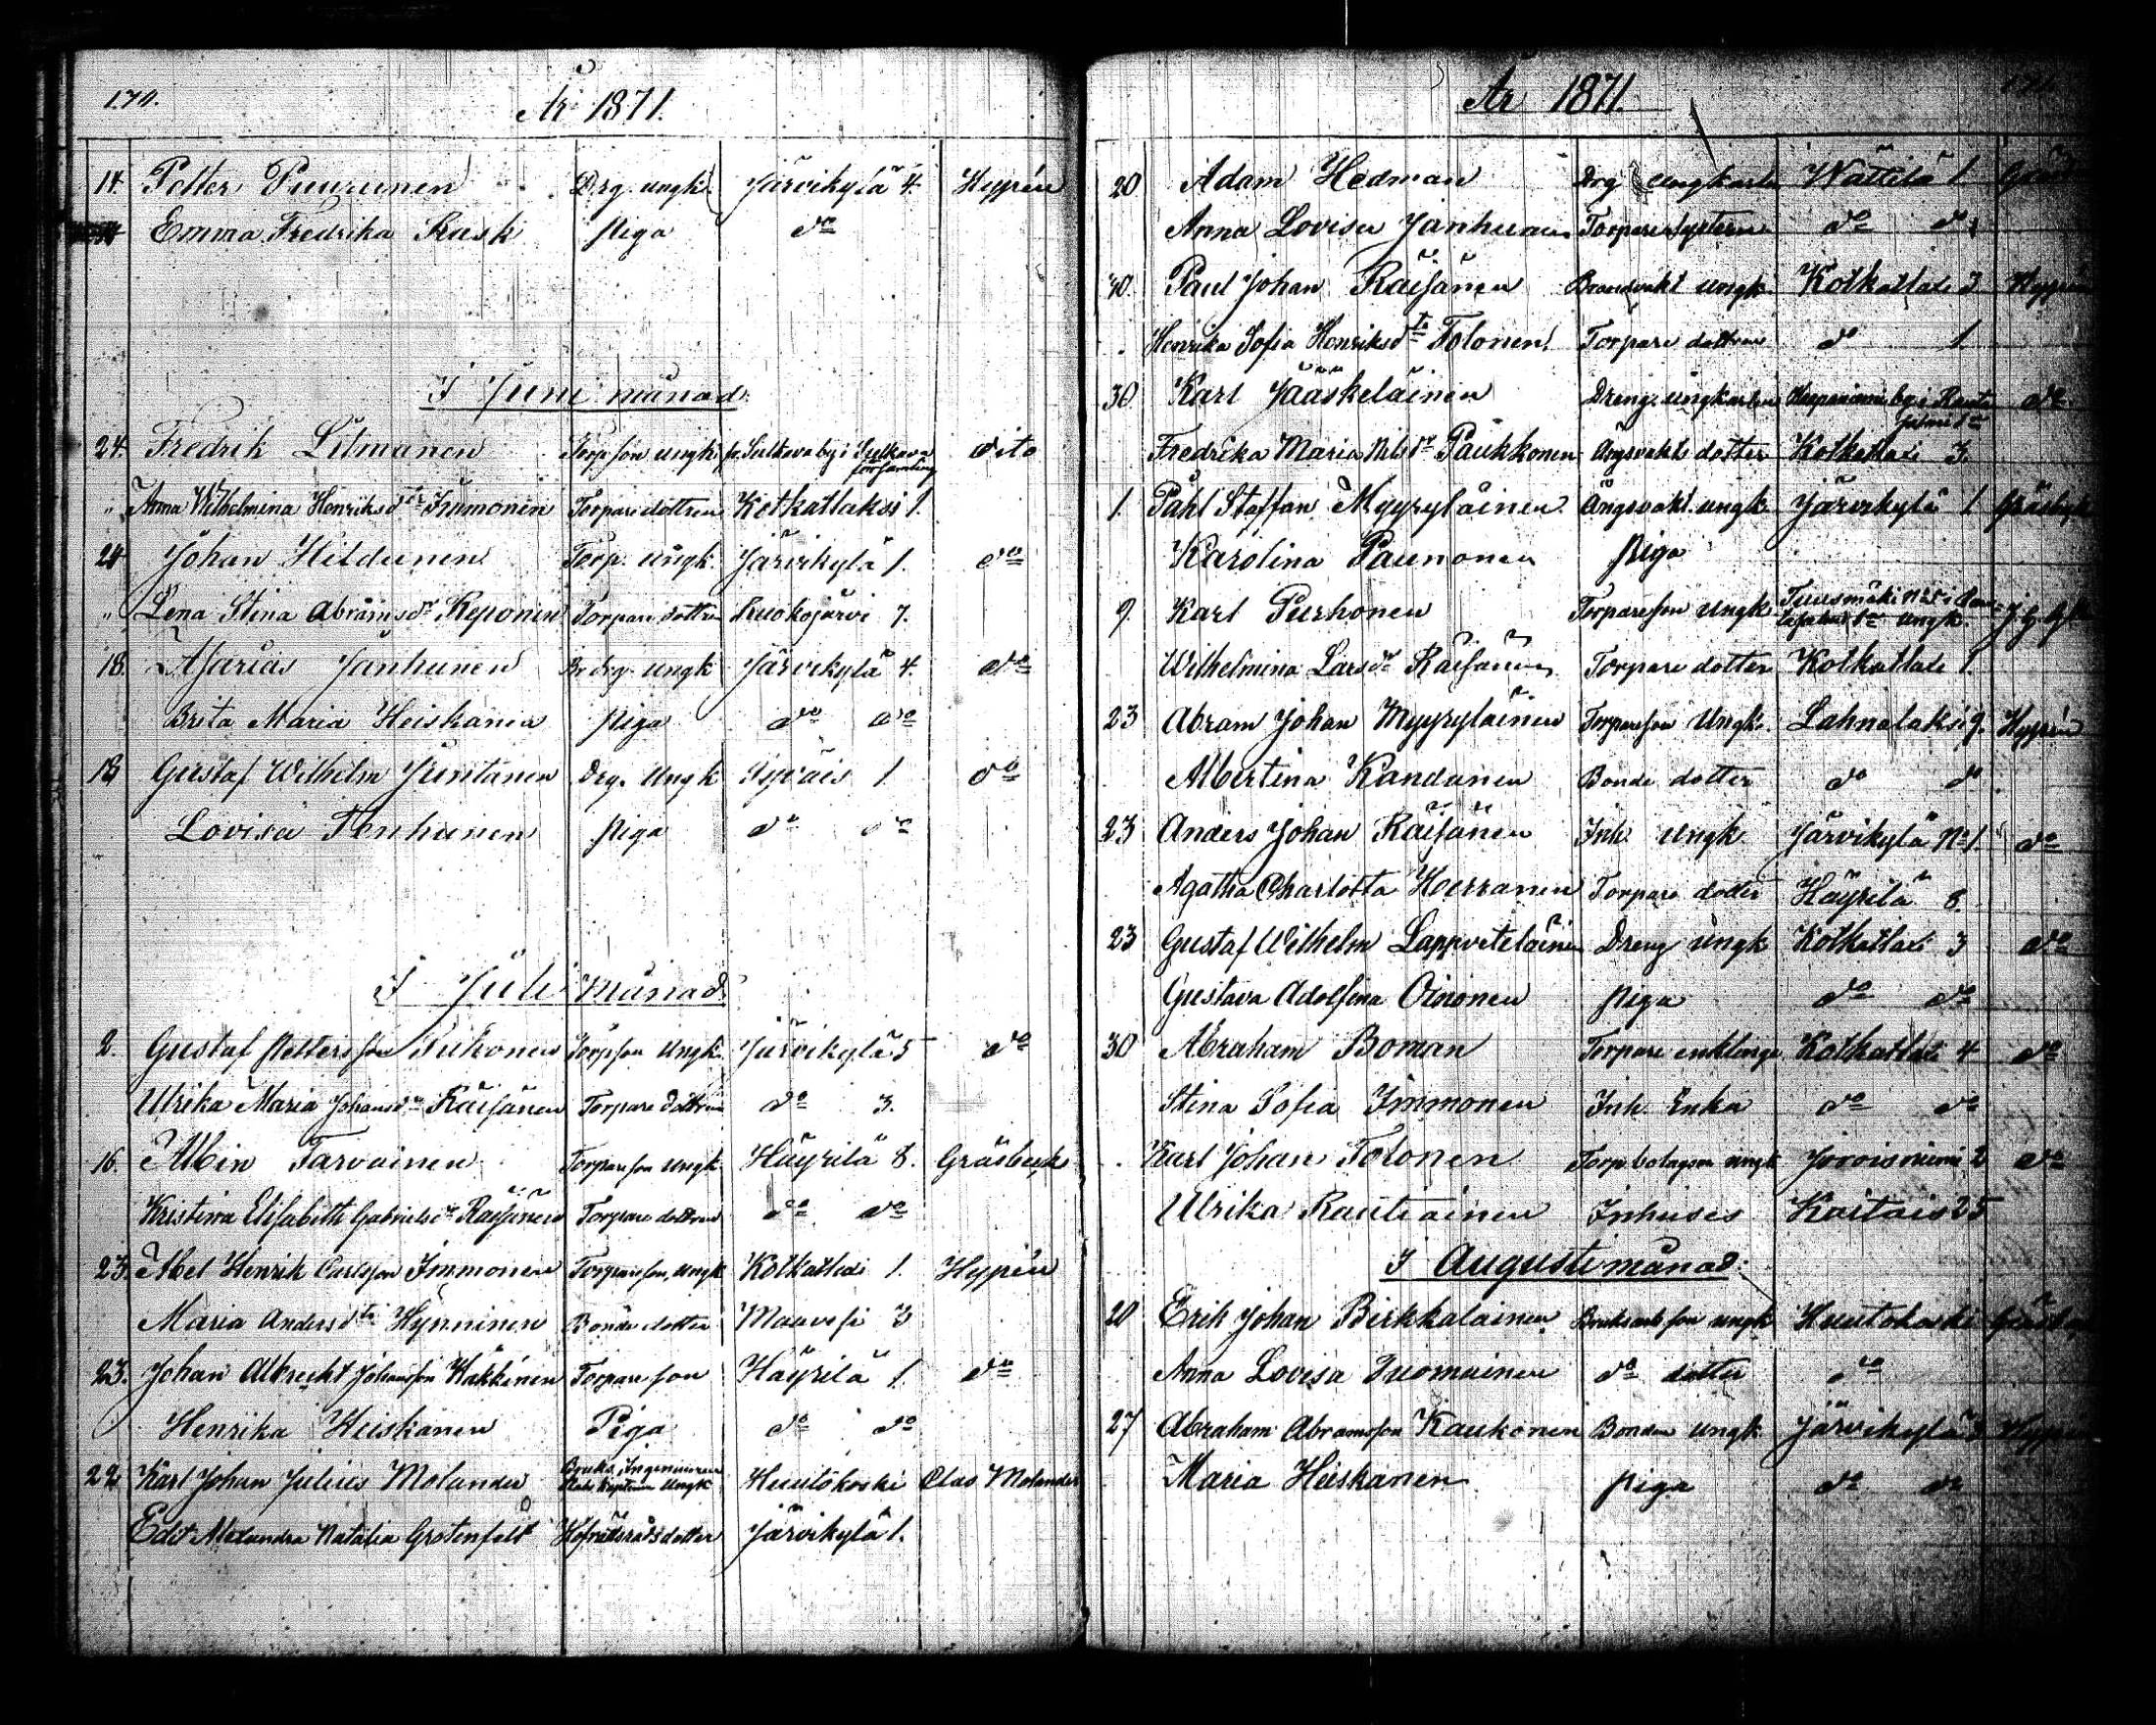 174.
År 1871.
14. Petter Puurunen Drg. ungk. Järvikylä 4. Hyppén
Emma Fredrika Rask piga do
I Juni månad
24. Fredrik Litmanen Torpson ungk. fr. Sulkava by i Sulkava dito
församling
" Anna Wilhelmina Henriksdtr Immonen Torpare dottren Kotkatlaksi 1.
24 Johan Hildunen Torp. ungk. Järvikylä 1. do
" Lena Stina Abramsdr Reponen Torpare dottren Ruokojärvi 7.
18. Asarias Janhunen drg. ungk Järvikylä 4. do
Brita Maria Heiskanen piga do do
18 Gustaf Wilhelm Juntanen Drg. Ungk Syväis 1 do
Lovisa Tenhunen piga do do
I Juli månad
2. Gustaf Pettersson Torpson Ungk. Järvikylä 5 do
Ulrika Maria Johansdr Räisänen Torpare dottren do 3.
16. Albin Tarvainen Torpareson ungk Häyrilä 8. Gräsbeck
Kristina Elisabeth Gabrielsdr Räisänen Torpare dottren do do
23. Abel Henrik Carlsson Immonen Torpareson, ungk Kotkatlaksi 1. Hyppén
Maria Andersdtr Hynninen Bonde dotter Maavesi 3
23. Johan Albrecht Johansson Häkkinen Torpare son Häyrilä 1. do
Henrika Heiskanen Piga do do
22 Karl Johan Julius Molander Bruks Ingeniören Huutokoski Clas Molander
Ungk
Edit Alexandra Natalia Grotenfelt Hofrättsrådsdotter Järvikylä 1.
År 1871
20 Adam Hedman Drg Ungkarlen Wättilä 1.
Anna Lovisa Janhunen Torpare systern do do
Paul Johan Räisänen ungk. Kotkatlaksi 3 Hyppén
Henrika Sofia Henriksdtr Tolonen Torpare dottren do 1.
30 Karl Jääskeläinen Dreng ungkarlen by i do
Fredrika Maria Nilsdr Paukkonen Ängsvakts dotter Kotkatlaksi 3.
1. Påhl Staffan Myyryläinen Ängsvakt. ungk Järvikylä 1 Gräsbeck
Karolina Paunonen piga
9. Karl Purhonen Torpareson Ungk
Wilhelmina Larsdr Räisänen Torpare dotter Kotkatlaksi 1.
23 Abram Johan Myyryläinen Torpareson Ungk. Lahnalaksi 9. Hyppén
Albertina Kandanen Bonde dotter do do
23 Anders Johan Räisänen Inh. ungk Järvikylä No 1. do
Agatha Charlotta Herranen Torpare dotter Häyrilä 8.
23 Gustaf Wilhelm Lappveteläinen Dreng ungk Kotkatlaksi 3 do
Gustava Adolfina Oinonen piga do do
30 Abraham Boman Torpare enklinge Kotkatlaksi 4 do
Stina Sofia Immonen Inh. Enka do do
Karl Johan Tolonen Torp. bolagsm ungk Joroisniemi 2 do
Ulrika Rautiainen Inhuses Kaitais 25
I Augusti månad.
20 Erik Johan Birkkalainen Bruksarb son ungk Huutokoski
Anna Lovisa Tuomainen do dotter do
27 Abraham Abramsson Kaukonen Bonden ungk. Järvikylä 3
Maria Heiskanen piga do do